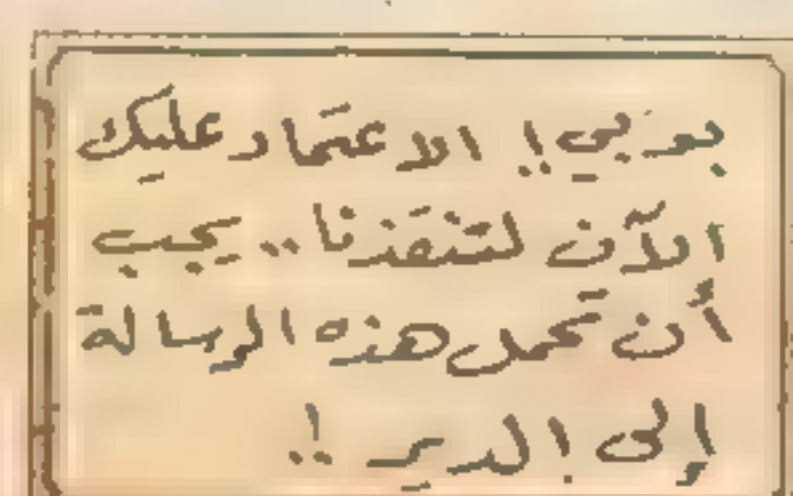 بوبي !! الاعتماد عليك
الآن لتنقذنا .. يجب
أن تحمل هذه الرسالة
إلى الدير !!